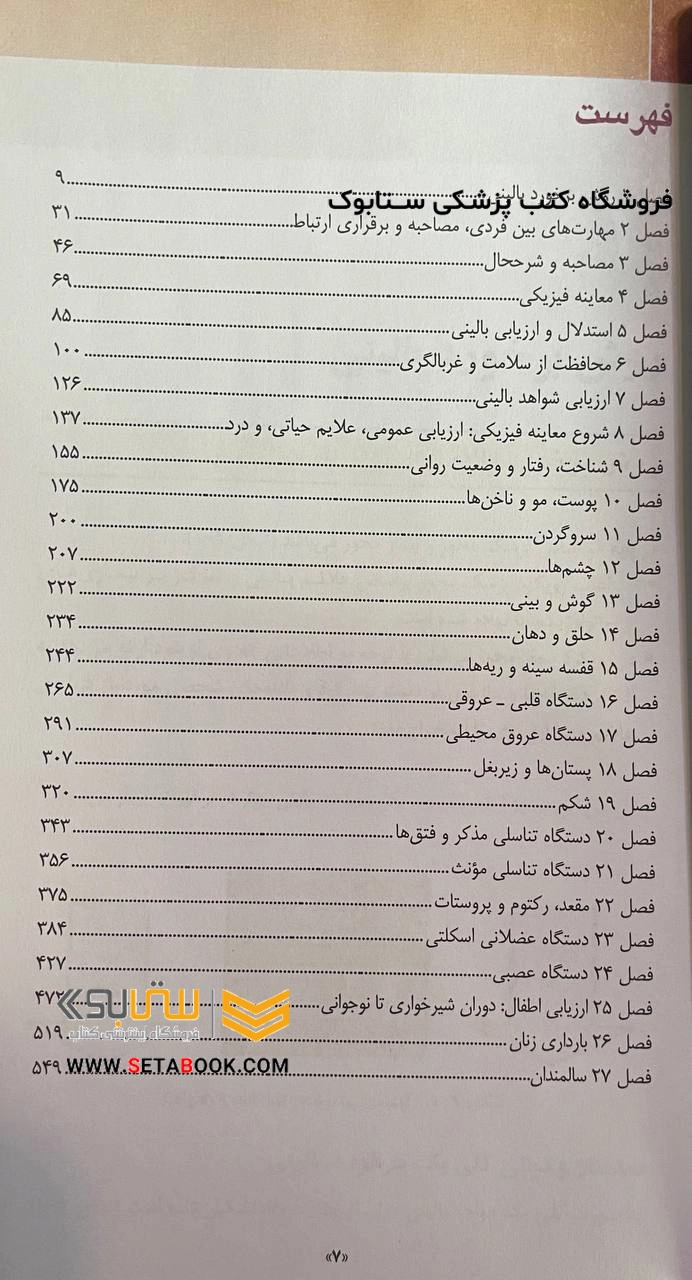 فهرست
فروشگاه کتب پزشکی ستابوک
فصل ۱ روش برخورد بالینی ۹
فصل ۲ مهارت‌های بین فردی، مصاحبه و برقراری ارتباط ۳۱
فصل ۳ مصاحبه و شرححال ۴۶
فصل ۴ معاینه فیزیکی ۶۹
فصل ۵ استدلال و ارزیابی بالینی ۸۵
فصل ۶ محافظت از سلامت و غربالگری ۱۰۰
فصل ۷ ارزیابی شواهد بالینی ۱۲۶
فصل ۸ شروع معاینه فیزیکی: ارزیابی عمومی، علایم حیاتی، و درد ۱۳۷
فصل ۹ شناخت، رفتار و وضعیت روانی ۱۵۵
فصل ۱۰ پوست، مو و ناخن‌ها ۱۷۵
فصل ۱۱ سروگردن ۲۰۰
فصل ۱۲ چشم‌ها ۲۰۷
فصل ۱۳ گوش و بینی ۲۲۲
فصل ۱۴ حلق و دهان ۲۳۴
فصل ۱۵ قفسه سینه و ریه‌ها ۲۴۴
فصل ۱۶ دستگاه قلبی ـ عروقی ۲۶۵
فصل ۱۷ دستگاه عروق محیطی ۲۹۱
فصل ۱۸ پستان‌ها و زیربغل ۳۰۷
فصل ۱۹ شکم ۳۲۰
فصل ۲۰ دستگاه تناسلی مذکر و فتق‌ها ۳۴۳
فصل ۲۱ دستگاه تناسلی مؤنث ۳۵۶
فصل ۲۲ مقعد، رکتوم و پروستات ۳۷۵
فصل ۲۳ دستگاه عضلانی اسکلتی ۳۸۴
فصل ۲۴ دستگاه عصبی ۴۲۷
فصل ۲۵ ارزیابی اطفال: دوران شیرخواری تا نوجوانی ۴۷۲
ستابوک
فروشگاه اینترنتی کتاب
فصل ۲۶ بارداری زنان ۵۱۹
فصل ۲۷ سالمندان ۵۴۹
WWW.SETABOOK.COM
«۷»